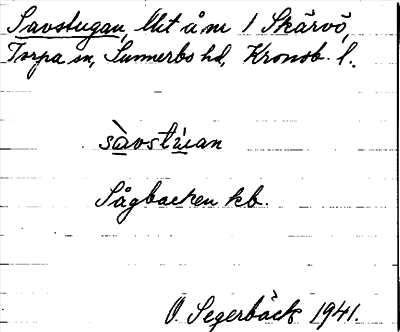 Savstugan, lht å nr 1 Skärvö,
Torpa sn, Sunnerbo hd, Kronob. l.
sàvstúan
Sågbacken kb.
O. Segerbäck 1941.